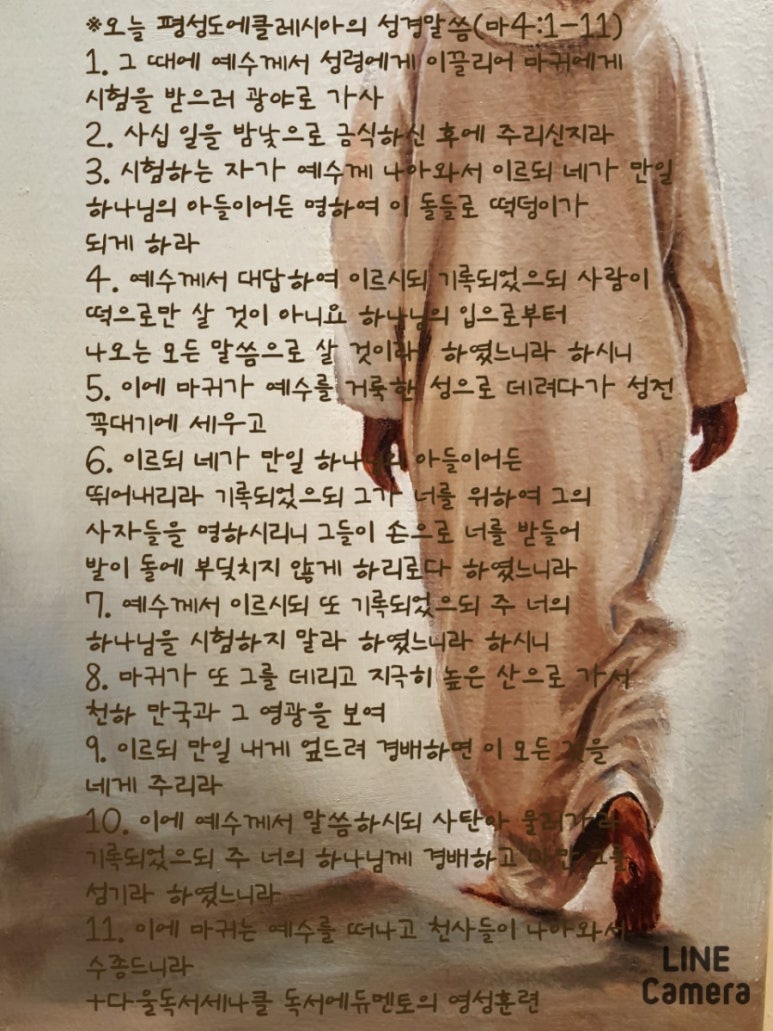 ※오늘 평성도에클레시아의 성경말씀(마4:1-11)
1. 그 때에 예수께서 성령에게 이끌리어 마귀에게
시험을 받으러 광야로 가사
2. 사십 일을 밤낮으로 금식하신 후에 주리신지라
3. 시험하는 자가 예수께 나아와서 이르되 네가 만일
하나님의 아들이어든 명하여 이 돌들로 떡덩이가
되게 하라
4. 예수께서 대답하여 이르시되 기록되었으되 사람이
떡으로만 살 것이 아니요 하나님의 입으로부터
나오는 모든 말씀으로 살 것이라 하였느니라 하시니
5. 이에 마귀가 예수를 거룩한 성으로 데려다가 성전
꼭대기에 세우고
6. 이르되 네가 만일 하나님의 아들이어든
뛰어내리라 기록되었으되 그가 너를 위하여 그의
사자들을 명하시리니 그들이 손으로 너를 받들어
발이 돌에 부딪치지 않게 하리로다 하였느니라
7. 예수께서 이르시되 또 기록되었으되 주 너의
하나님을 시험하지 말라 하였느니라 하시니
8. 마귀가 또 그를 데리고 지극히 높은 산으로 가서
천하 만국과 그 영광을 보여
9. 이르되 만일 내게 엎드려 경배하면 이 모든 것을
네게 주리라
10. 이에 예수께서 말씀하시되 사탄아 물러가라
기록되었으되 주 너의 하나님께 경배하고 다만 그를
섬기라 하였느니라
11. 이에 마귀는 예수를 떠나고 천사들이 나아와서
수종드니라
+다울독서세나클 독서에듀멘토의 영성훈련
LINE
Camera